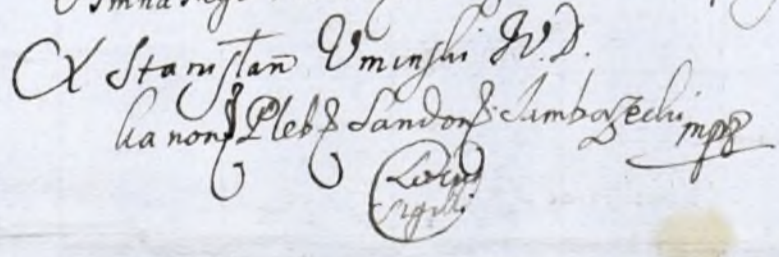 X Stanisłan Uminski J.V.D.
kanon Pleb Sandom: Samborzecki mpp
Locus
Sigilli